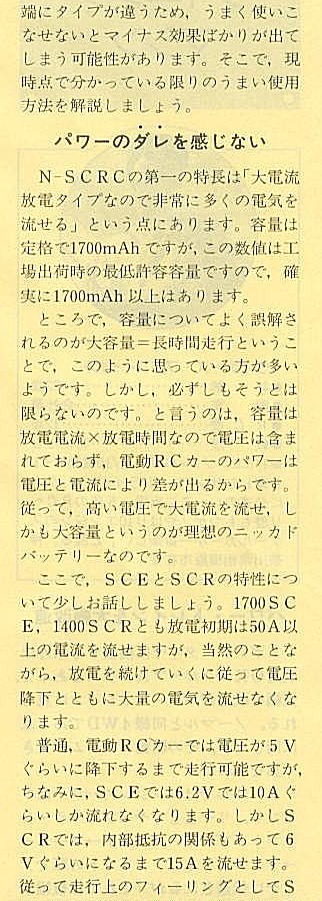 端にタイプが違うため，うまく使いこ
なせないとマイナス効果ばかりが出て
しまう可能性があります。そこで，現
時点で分かっている限りのうまい使用
方法を解説しましょう。
パワーのダレを感じない
N-SCRCの第一の特長は「大電流
放電タイプなので非常に多くの電気を
流せる」という点にあります。容量は
定格で1700mAhですが，この数値は工
場出荷時の最低許容容量ですので，確
実に1700mAh以上はあります。
ところで，容量についてよく誤解さ
れるのが大容量＝長時間走行というこ
とで，このように思っている方が多い
ようです。しかし，必ずしもそうとは
限らないのです。と言うのは，容量は
放電電流×放電時間なので電圧は含ま
れておらず，電動RCカーのパワーは
電圧と電流により差が出るからです。
従って，高い電圧で大電流を流せ，し
かも大容量というのが理想のニッカド
バッテリーなのです。
ここで，SCEとSCRの特性につ
いて少しお話ししましょう。1700SC
E，1400SCRとも放電初期は50A以
上の電流を流せますが，当然のことな
がら，放電を続けていくに従って電圧
降下とともに大量の電気を流せなくな
ります。
普通，電動RCカーでは電圧が5V
ぐらいに降下するまで走行可能ですが，
ちなみに，SCEでは6.2Vでは10Aぐ
らいしか流れなくなります。しかしS
CRでは，内部抵抗の関係もあって6
Vぐらいになるまで15Aを流せます。
従って走行上のフィーリングとしてS